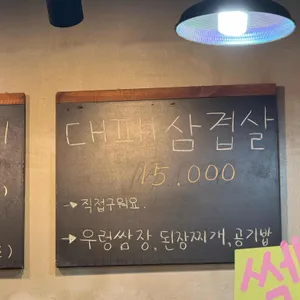 대패삼겹살
15.000
→ 직접구워요.
→ 우렁쌈장, 된장찌개, 공기밥
쌈